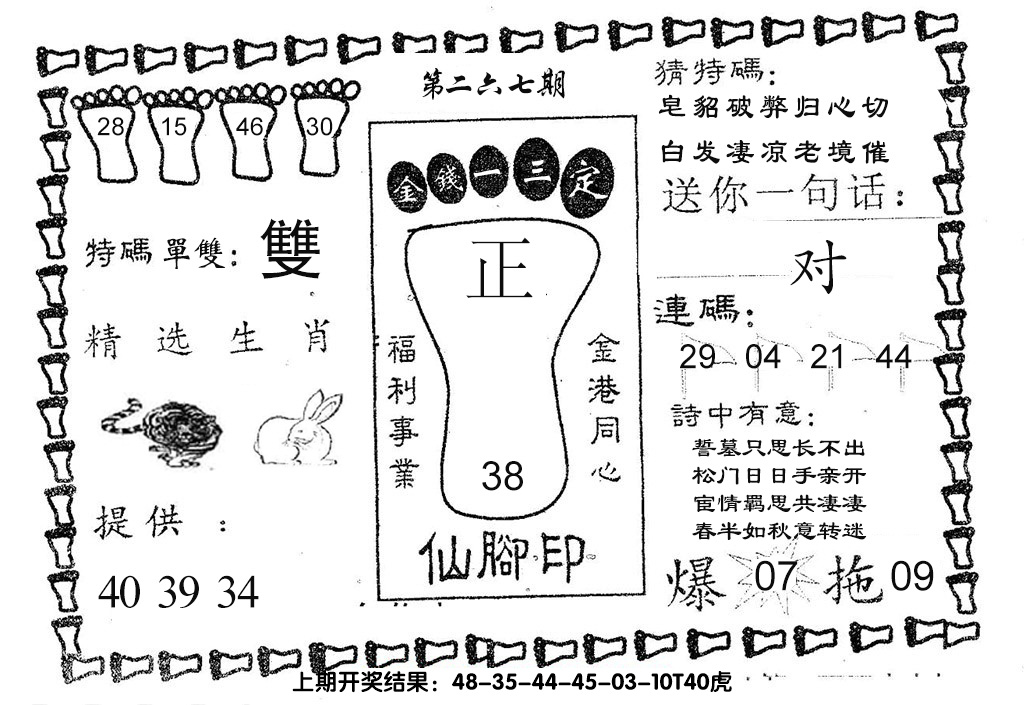 第二六七期
28 15 46 30
特碼單雙：雙
精选生肖
提供：
40 39 34
金錢一三定
正
福利事業
金港同心
38
仙腳印
猜特碼：
皂貂破弊归心切
白发凄凉老境催
送你一句话：
对
連碼：
29 04 21 44
詩中有意：
誓墓只思长不出
松门日日手亲开
宦情羁思共凄凄
春半如秋意转迷
爆 07 拖 09
上期开奖结果：48-35-44-45-03-10T40虎